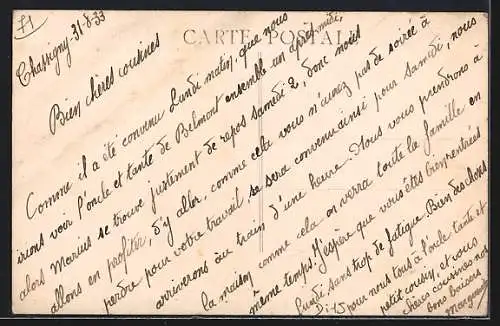 F1
CARTE POSTALE
Chassigny 31-8-33
Bien chères cousines
Comme il a été convenu Lundi matin, que nous
irions voir l'oncle et tante de Belmont ensemble un après midi,
alors Marius se trouve justement de repos samedi 2, donc nous
allons en profiter, d'y aller, comme cela vous n'aurez pas de soirée à
perdre pour votre travail, se sera convenu ainsi pour samedi, nous
arriverons au train d'une heure. Nous vous prendrons à
la maison comme cela on verra toute la famille en
même temps. J'espère que vous êtes rentrées
Lundi, sans trop de fatigue. Bien des choses
pour nous tous à l'oncle tante et
petit cousin, et vous
chères cousines nos
bons baisers